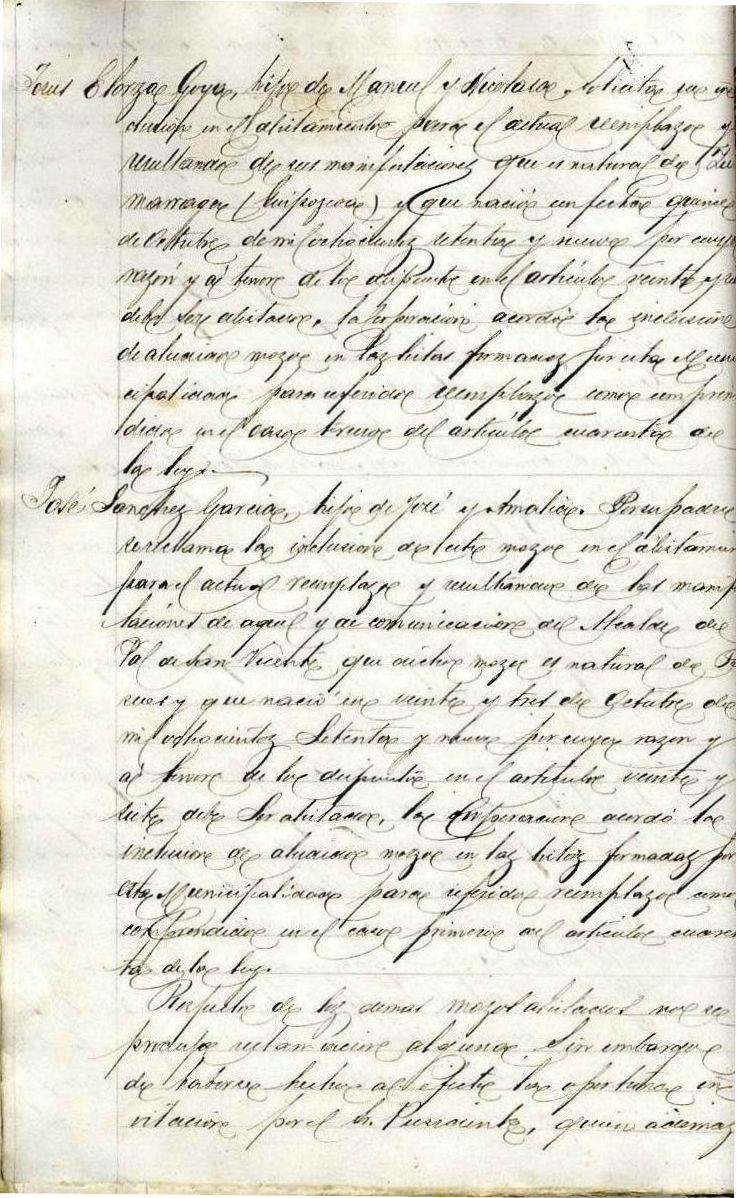 Jesus Elorza Goya, hijo de Manuel y Nicolasa. Solicita su in
clusion en el alistamiento para el actual reemplazo y
resultando de sus manifestaciones que es natural de Zu
marraga (Guipozcoa) y que nació en fecha quince
de Octubre de mil ochocientos setenta y nueve por cuya
razón y al tenor de lo dispuesto en el artículo veinte y sie
debe ser alistado, la Corporación acordó la inclusión
de aludido mozo en las listas formadas por esta Muni
cipalidad para referido reemplazo como compren
dido en el caso tercero del artículo cuarenta de
la ley.
José Sanchez Garcia, hijo de José y Amalia. Por su padre
se reclama la inclusion de este mozo en el alistamien
para el actual reemplazo y resultando de las manifes
taciónes de aquel y de comunicacion del Alcalde de
Val de San Vicente que dicho mozo es natural de Pe
sues y que nació en veinte y tres de Octubre de
mil ochocientos Setenta y nueve por cuya razon y
al tenor de lo dispuesto en el artículo veinte y
siete debe ser alistado, la Corporacion acordó la
inclusion de aludido mozo en las listas formadas por
esta Municipalidad para referido reemplazo como
comprendido en el caso primero del artículo cuaren
ta de la ley.
Respecto de los demas mozos alistados no se
produjo reclamacion alguna. Sin embargo
de haberse hecho al efecto la oportuna in
vitacion por el Sr. Presidente, quien además